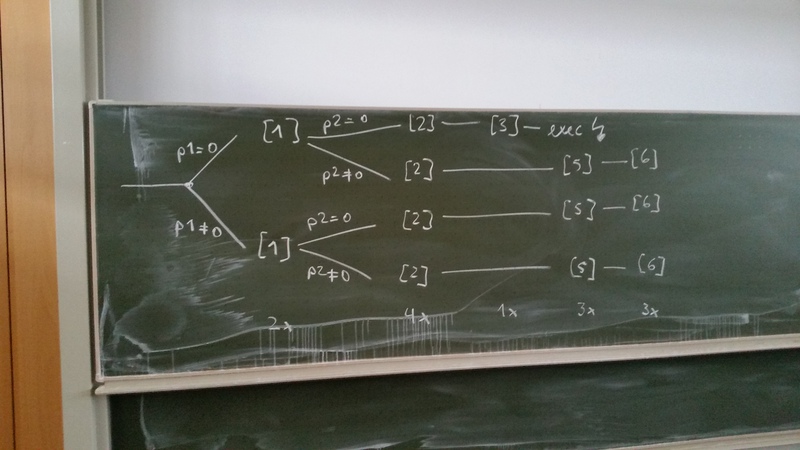 p1=0 [1] p2=0 [2] [3] exec ↯
p2≠0 [2] [5] [6]
p1≠0 [1] p2=0 [2] [5] [6]
p2≠0 [2] [5] [6]
2x 4x 1x 3x 3x